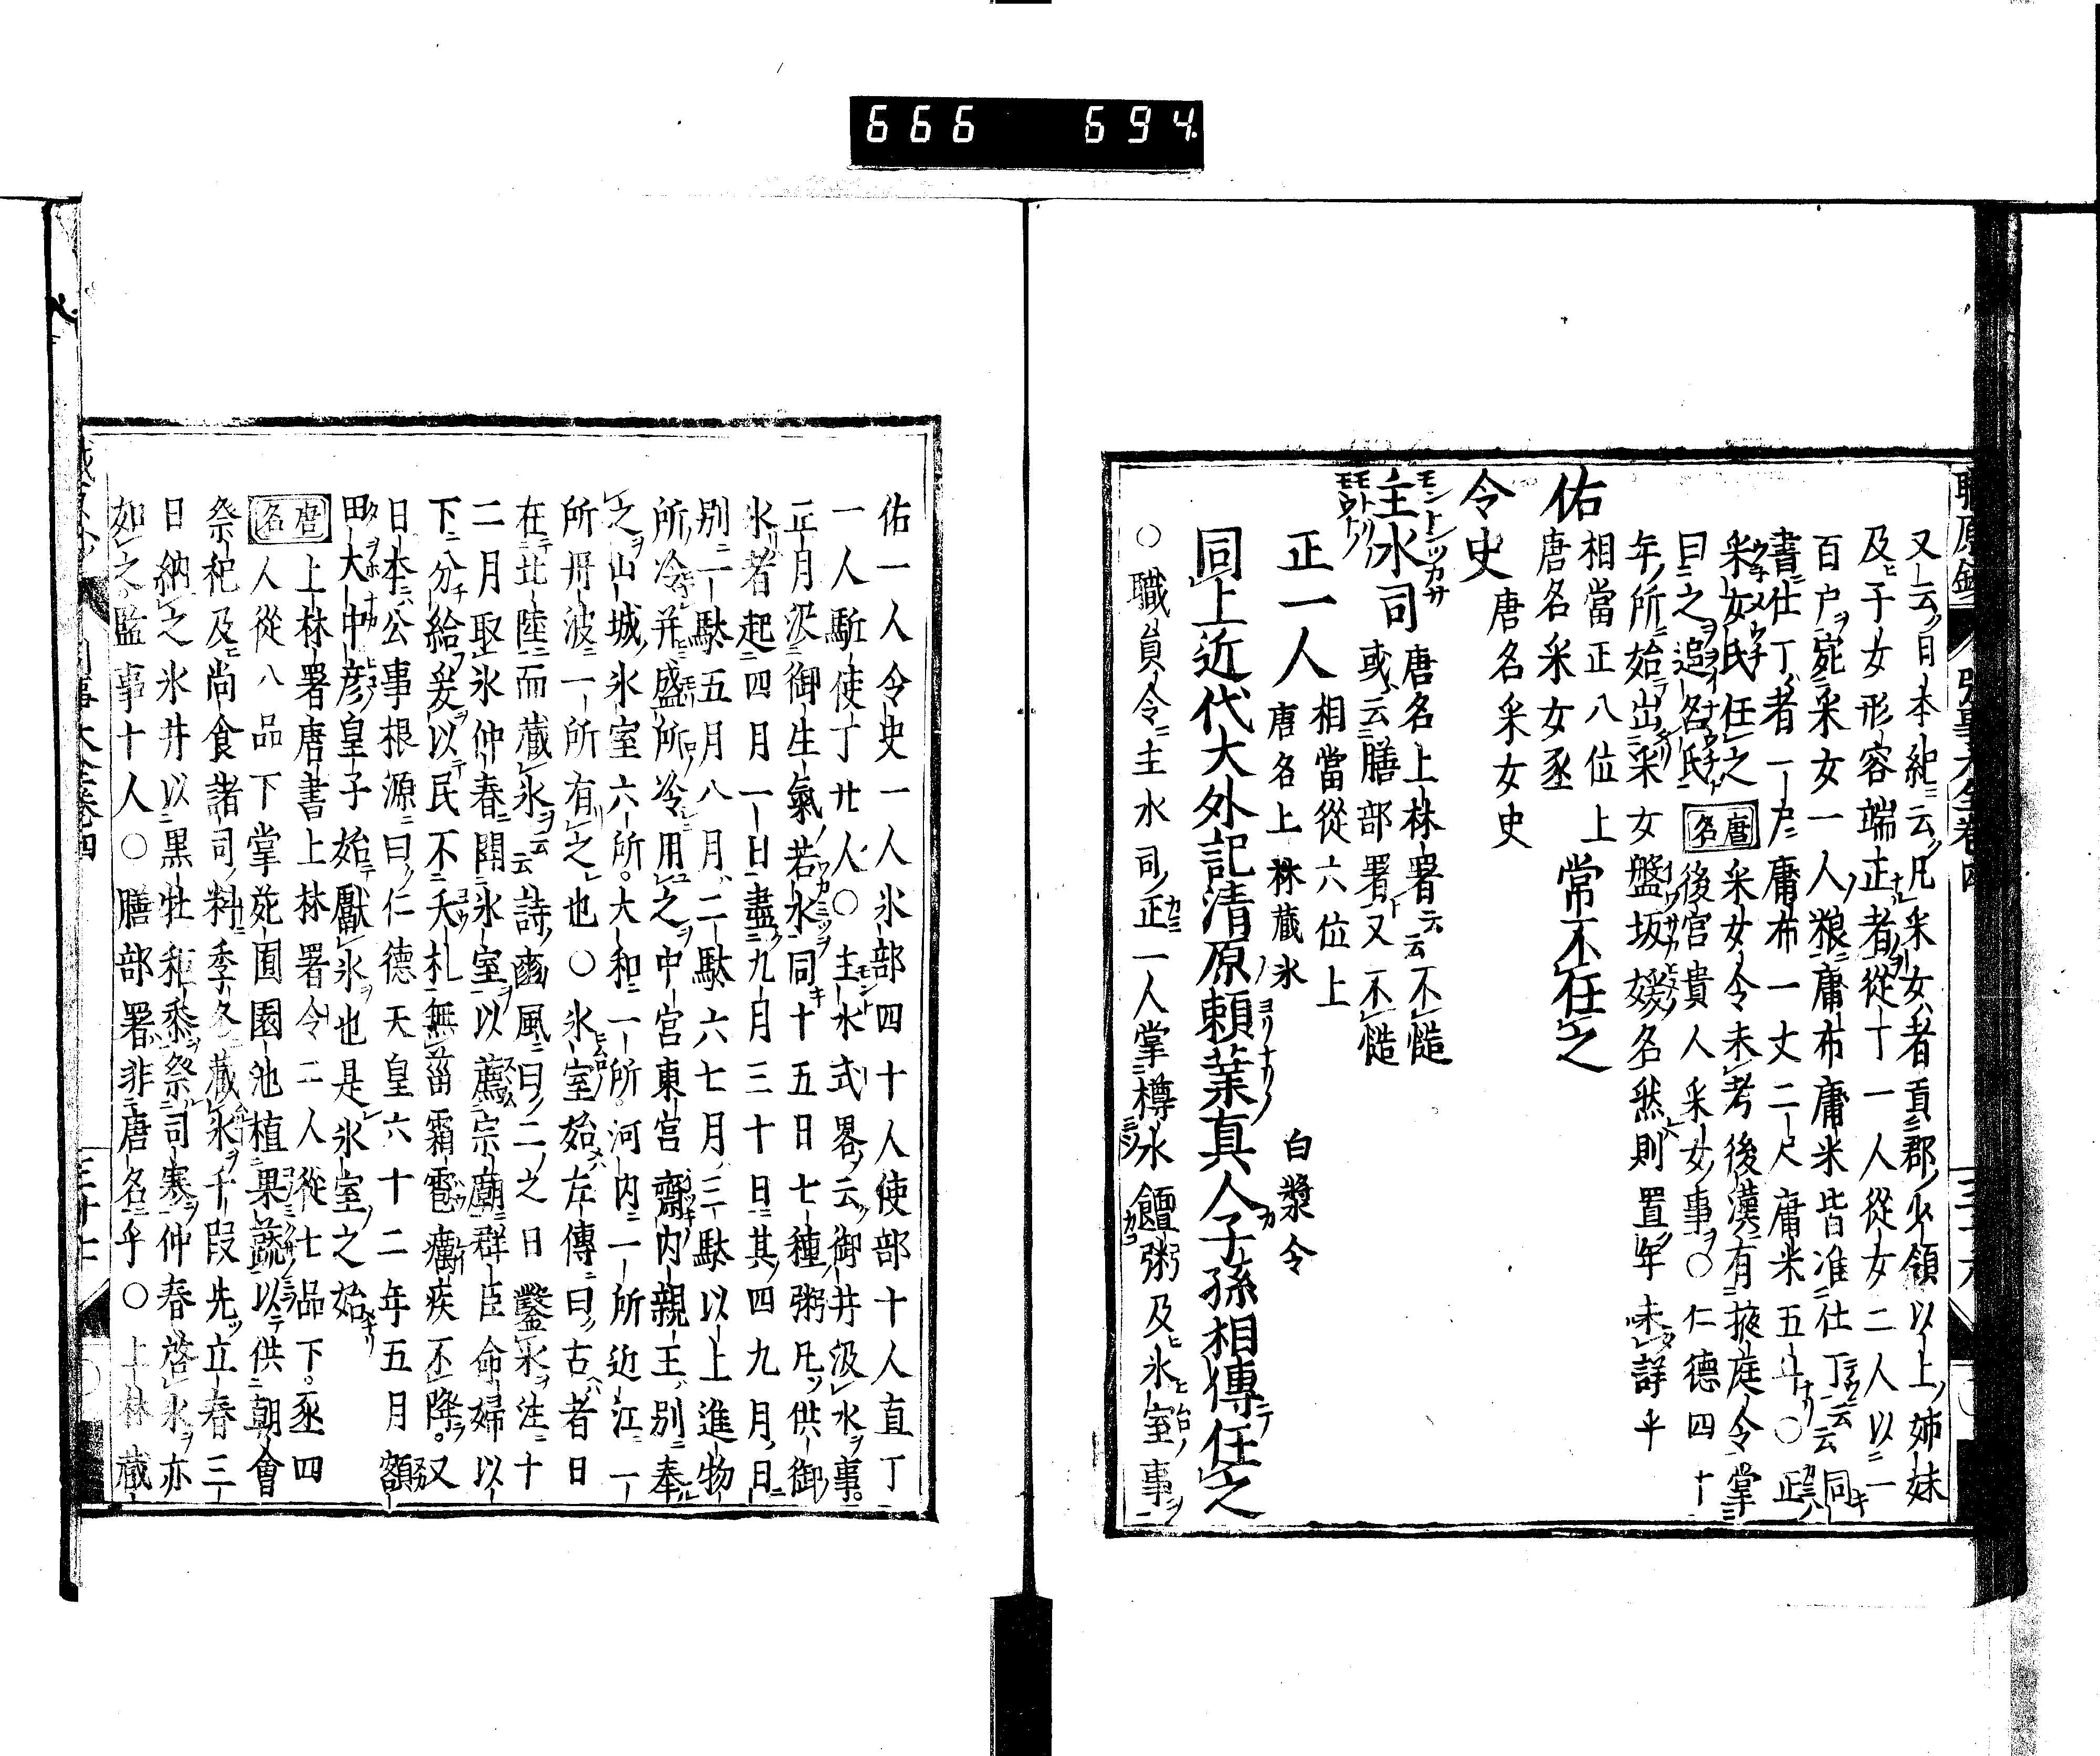 666 694.
又云日本紀云凡采女者貢郡少領以上姉妹
及子女形容端正者從丁一人從女二人以一
百戸宛采女一人粮庸布庸米皆准仕丁云云同
書仕丁者一戸庸布一丈二尺庸米五斗○正
采女氏任之 唐名 采女令未考後漢有掖庭令掌
曰之追名氏 後宮貴人采女事○仁德四十
年所始出采女盤坂媛名然則置年未詳乎
佑 相當正八位上 常不任之
唐名采女丞
令史 唐名采女史
主水司 唐名上林署云云不慥
或云膳部署又不慥
正一人 相當從六位上
唐名上林藏氷 白漿令
同上近代大外記清原頼業真人子孫相傳任之
○職員令主水司正一人掌樽水饘粥及氷室事
佑一人令史一人氷部四十人使部十人直丁
一人駈使丁廿人○主水式畧云御井汲水事
正月汲御生氣若水同十五日七種粥凡供御
氷者起四月一日盡九月三十日其四九月日
別二一駄五月八月二駄六七月三駄以上進物
所冷并盛所冷用之中宮東宮齋内親王別奉
之山城氷室六所大和一所河内一所近江一
所丹波一所所有之也○氷室始左傳曰古者日
在北陸而藏氷云云詩豳風曰二之日鑿氷注十
二月取氷仲春開氷室以薦宗廟群臣命婦以
下分給爰以民不夭札無菑霜雹癘疾不降又
日本公事根源曰仁德天皇六十二年五月額
田大中彦皇子始獻氷也是氷室之始
唐名 上林署唐書上林署令二人從七品下丞四
人從八品下掌苑囿園池植果蔬以供朝會
祭祀及尚食諸司料季冬藏氷千段先立春三
日納之氷井以黒牡秬黍祭司寒仲春啓氷亦
如之監事十人○膳部署非唐名乎○上林藏